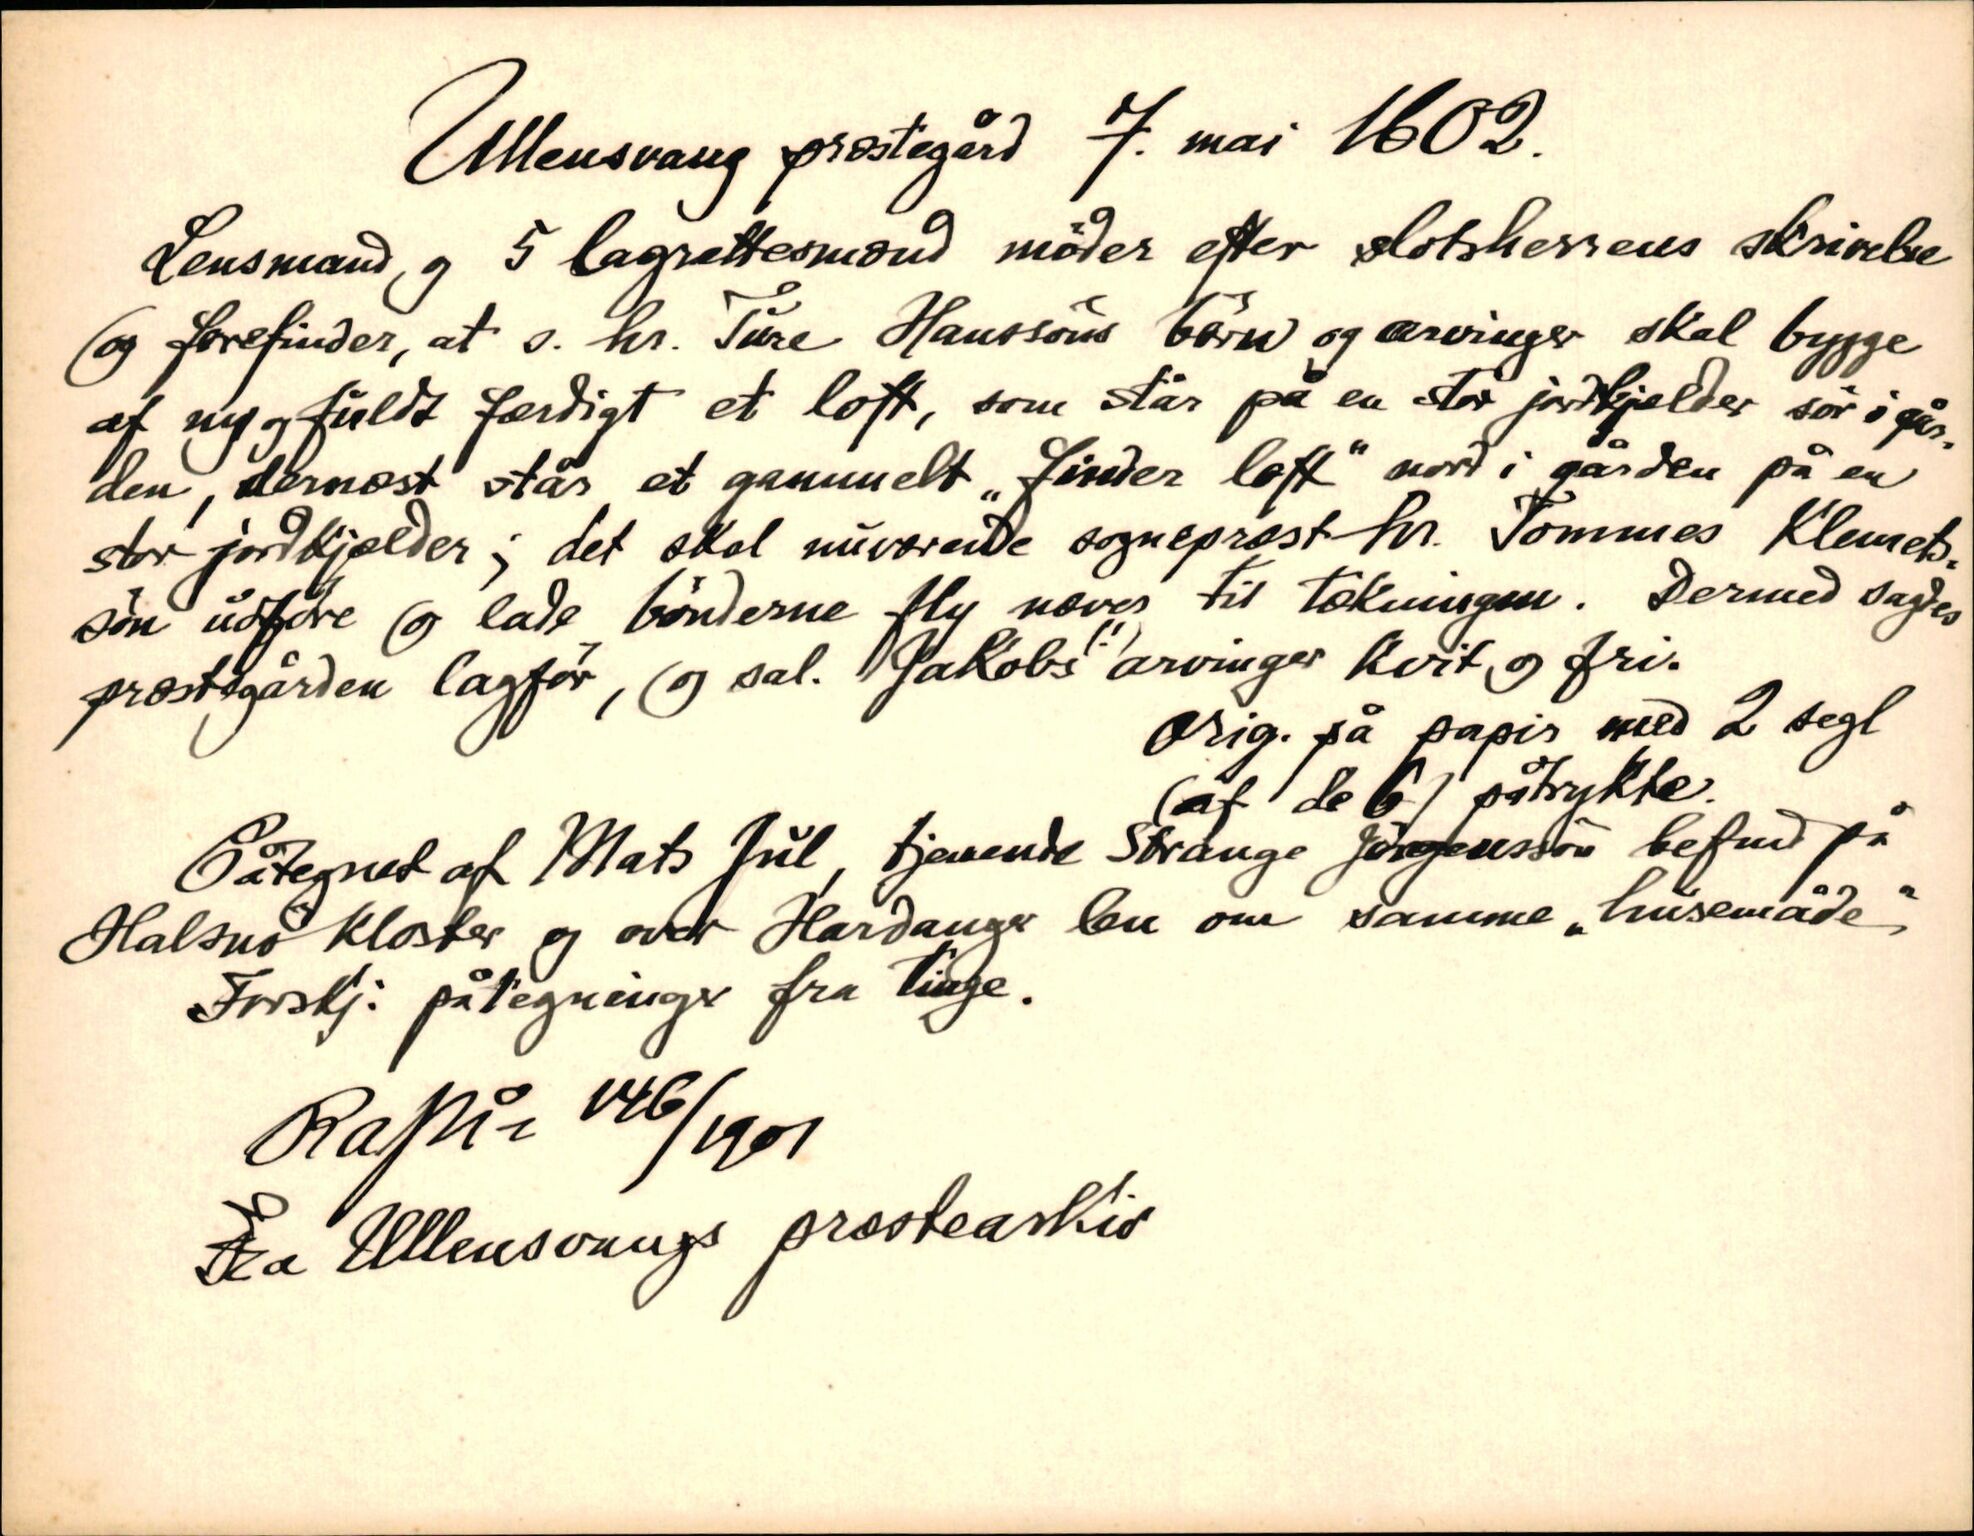 Ullensvang præstegård 7. mai 1602.
Lensmand og 5 lagrettesmænd möder efter slotsherrens skrivelse
og forefinder, at s. hr. Ture Hanssöns börn og arvinger skal bygge
af ny og fuldt færdigt et loft, som står på en stor jordkjælder sör i går-
den, dernæst står et gammelt „finder loft" nord i gården på en
stor jordkjælder; det skal nuværende sognepræst hr. Tommes Klemets-
sön udföre og lade bönderne fly næver til tækningen. Dermed sagdes
præstegården lagför, og sal. Jakobs (!) arvinger kvit og fri.
Orig. på papir med 2 segl
(af de 6) påtrykte.
Påtegnet af Mats Jul, tjenende Strange Jörgenssön befmd på
Halsnö kloster og over Hardanger len om samme „husemåde".
Forskj. påtegninger fra tinge.
146/1901
Fra Ullensvangs præstearkiv